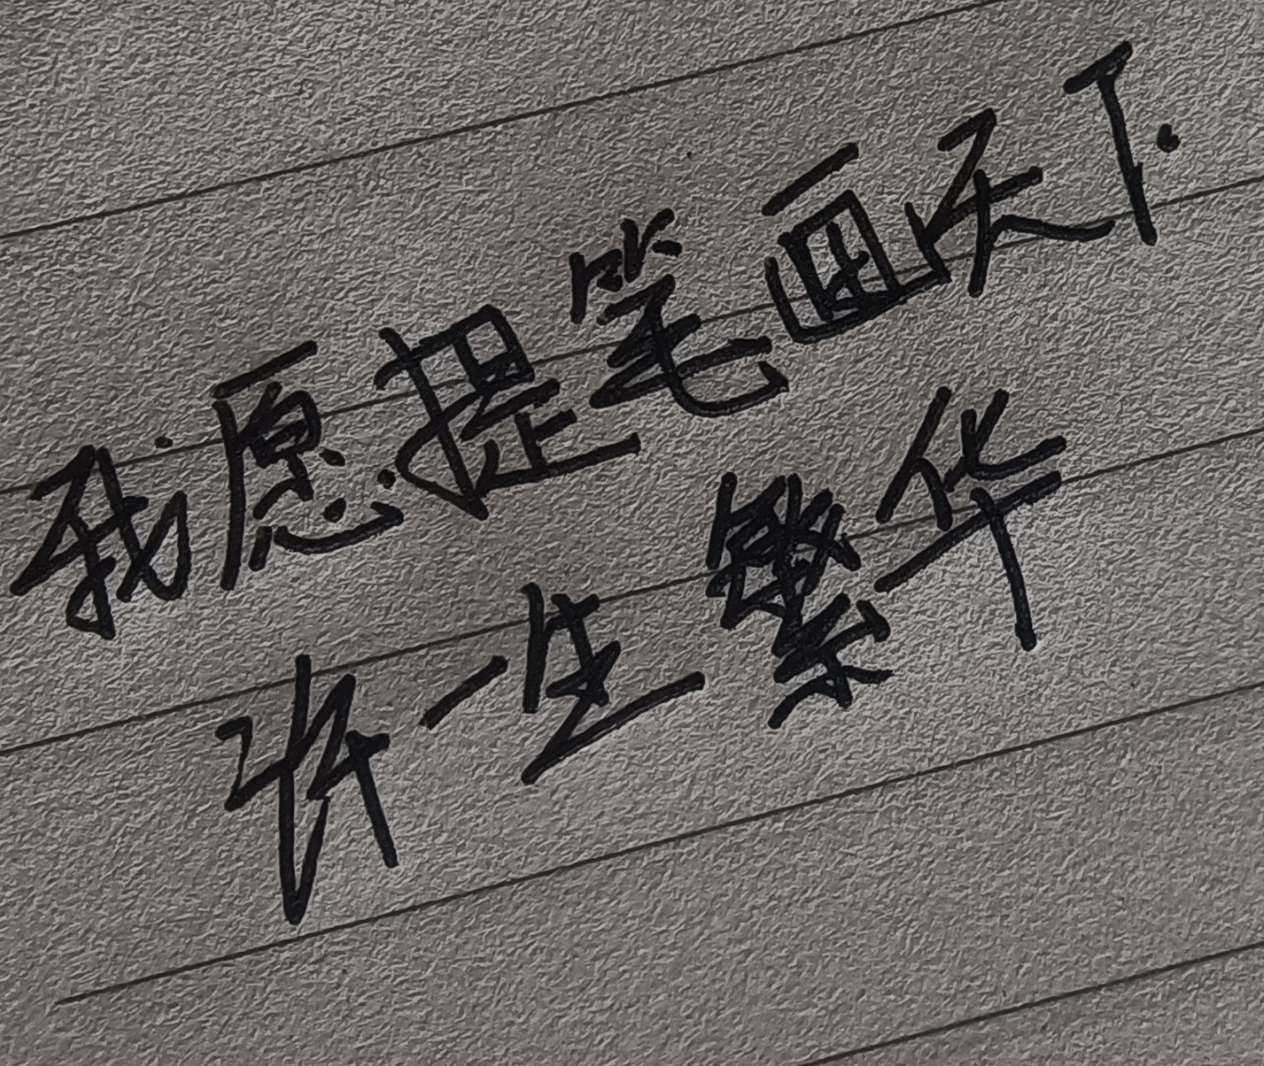 我愿提笔画天下
许一生繁华